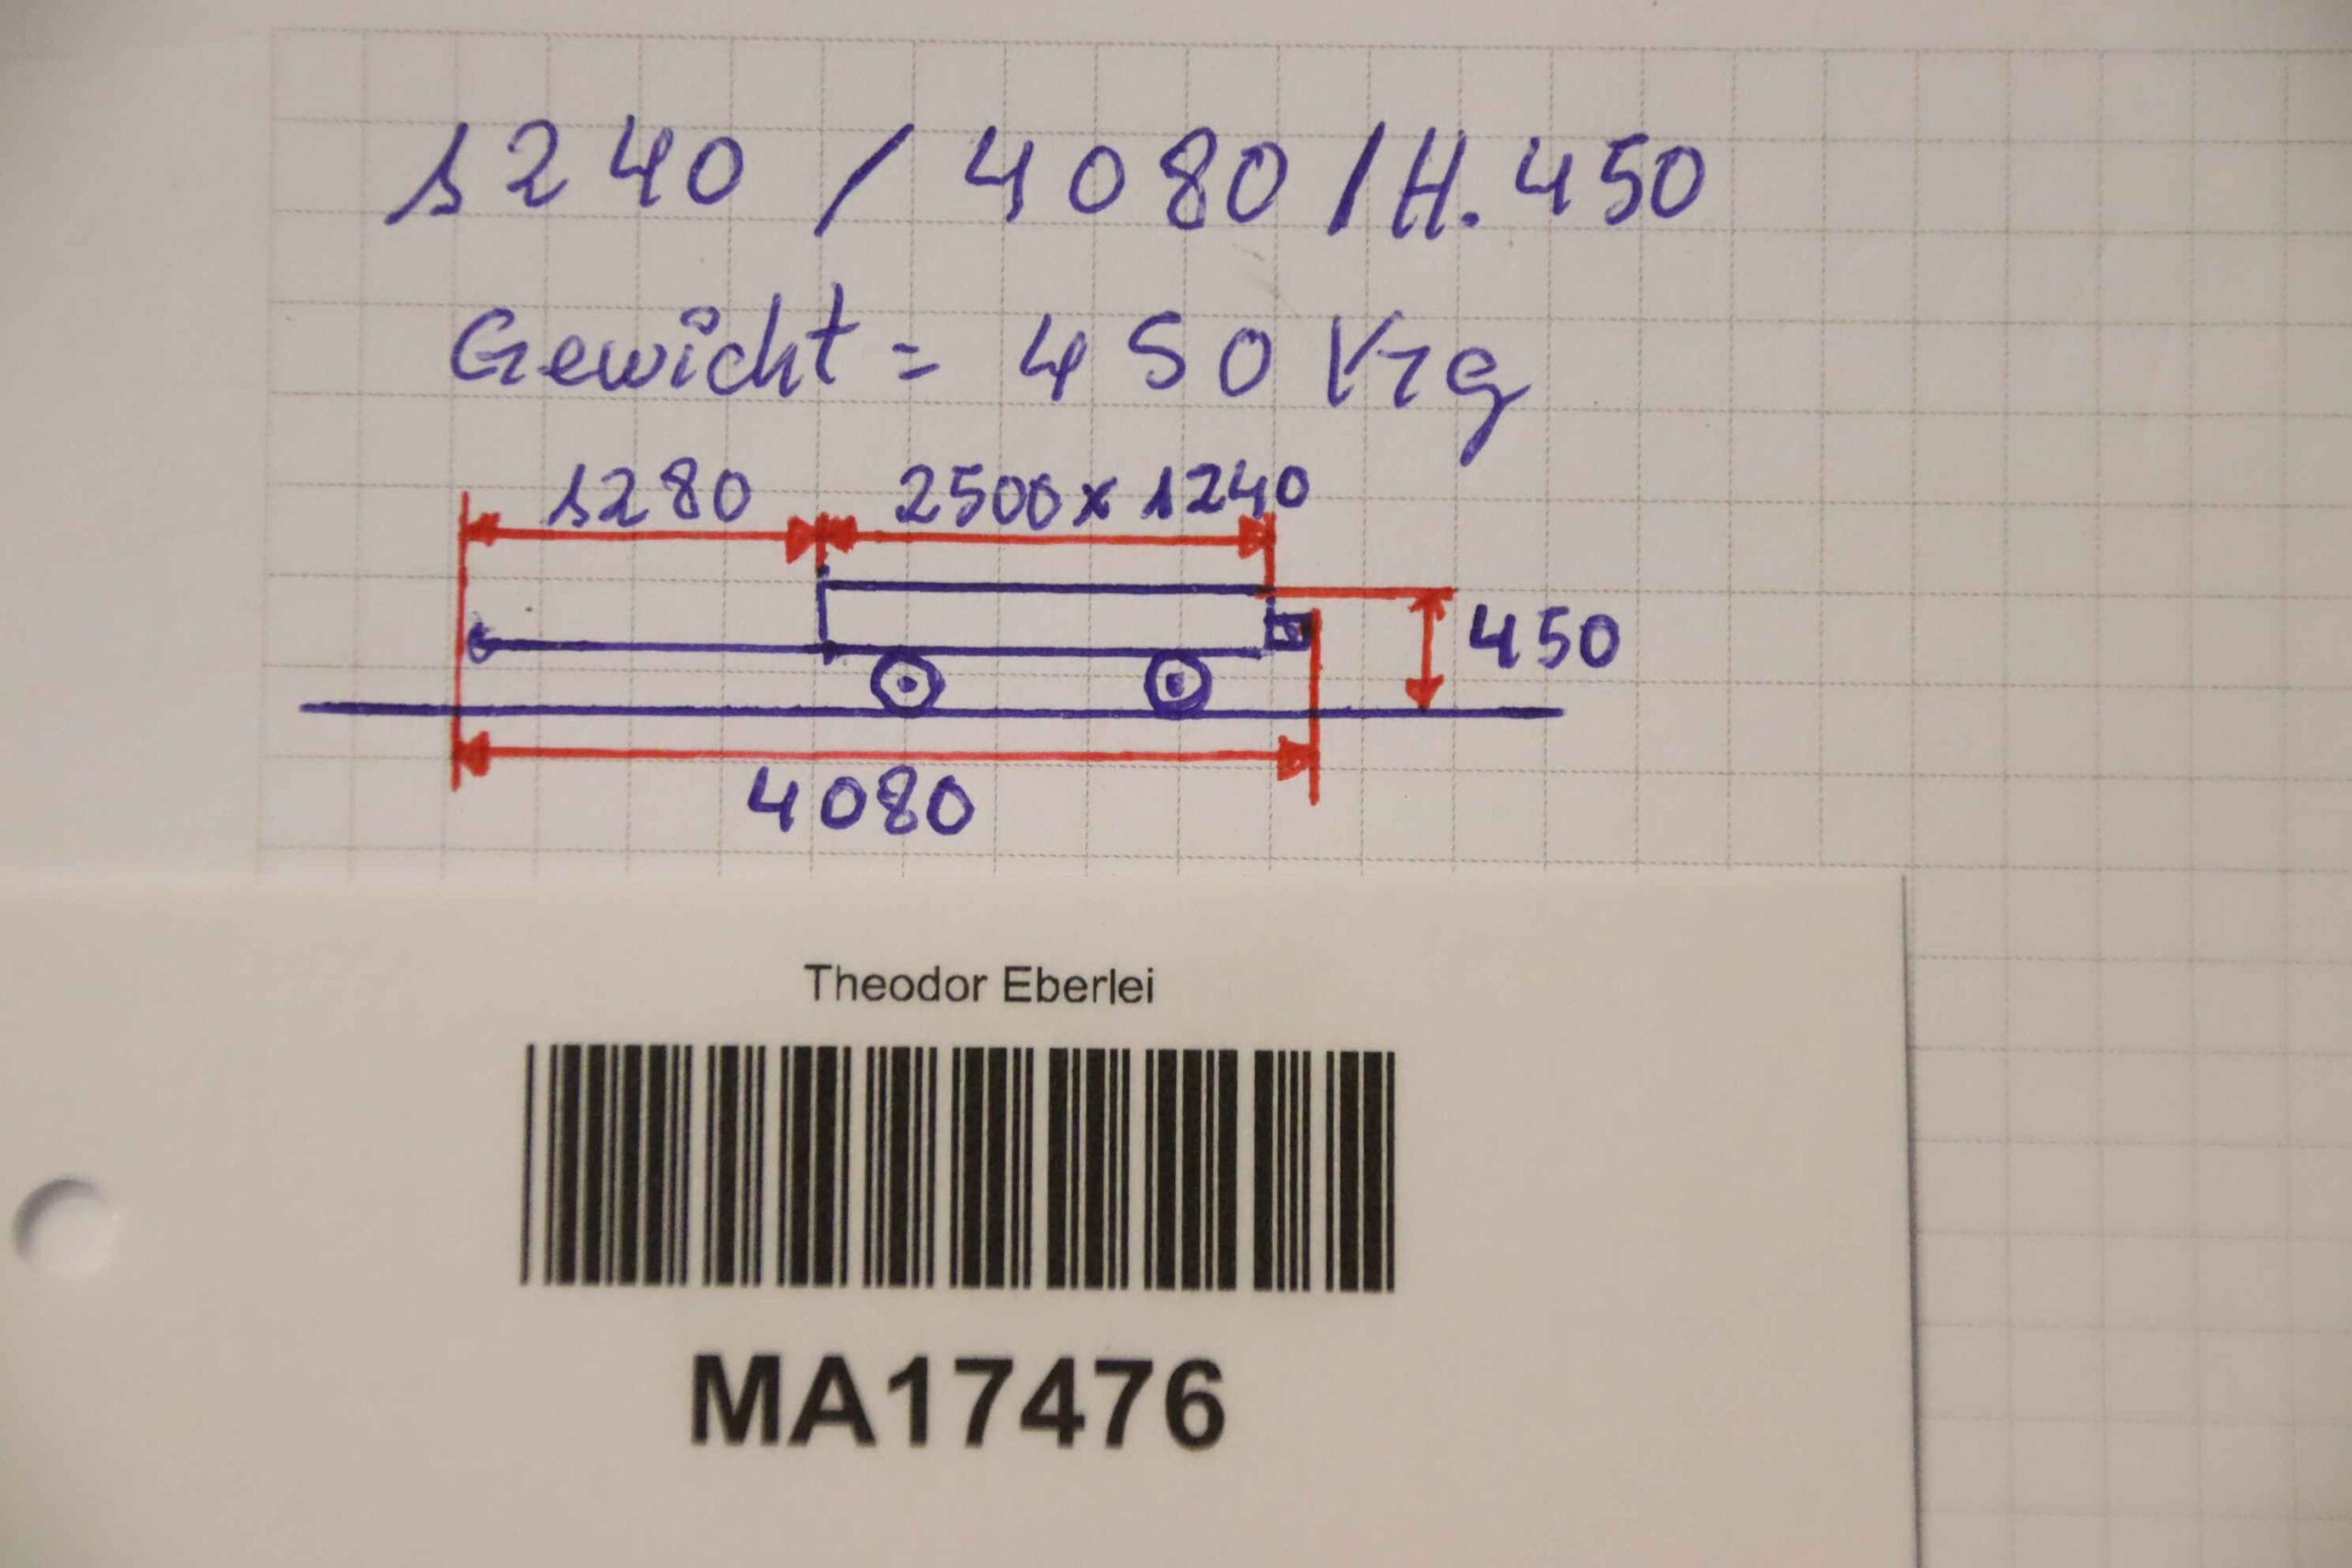 1240 / 4080 / H. 450
Gewicht = 450 Kg
1280 2500 x 1240
450
4080
Theodor Eberlei
MA17476